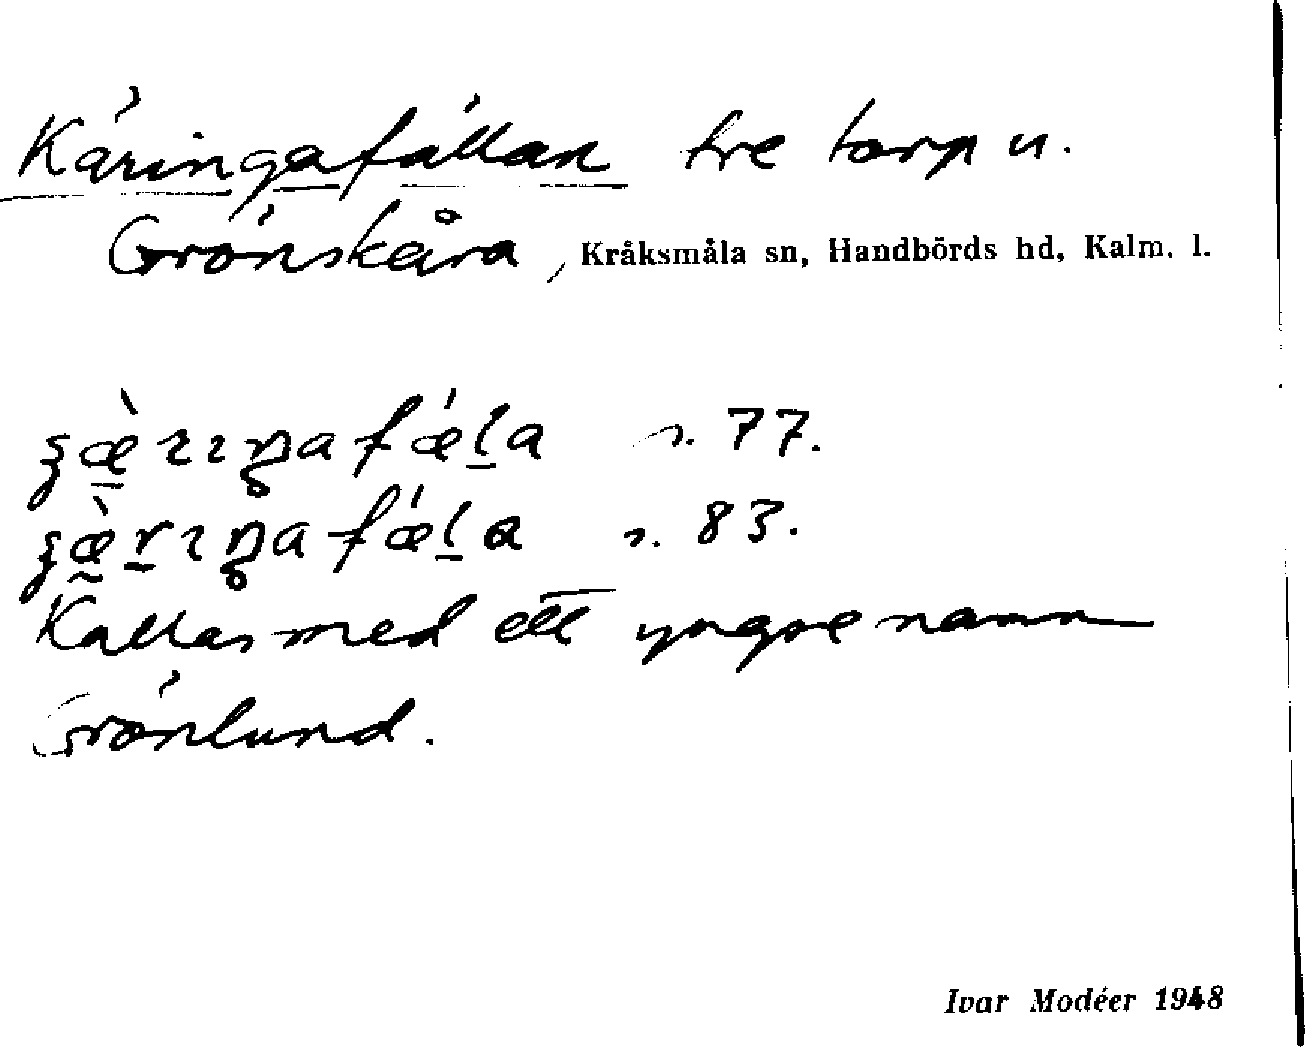 Käringafällan tre torp u.
Grönskåra, Kråksmåla sn, Handbörds hd, Kalm. l.
s. 77.
s. 83.
Kallas med ett yngre namn
Grönlund.
Ivar Modéer 1948